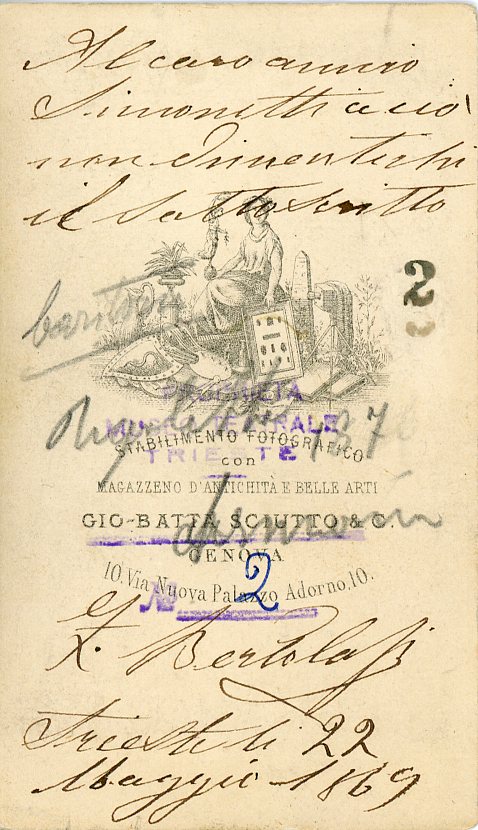 Al caro amico
Simonetti acciò
non dimentichi
il sottoscritto
2
baritono
PROPRIETÀ
MUSEO TEATRALE
TRIESTE
STABILIMENTO FOTOGRAFICO
con
MAGAZZENO D'ANTICHITÀ E BELLE ARTI
GIO-BATTA SCIUTTO & C.
GENOVA
10. Via Nuova Palazzo Adorno, 10.
No 2
Z. Bertolasi
Trieste li 22
Maggio 1869